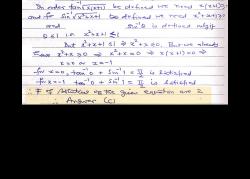 In order tan⁻¹√x(x+1) be defined we need x(x+1)≥
and for sin⁻¹√x²+x+1 be defined we need x²+x+1≥
and sin⁻¹θ is defined only if
0 ≤ x²+x+1 ≤ 1
But x²+x+1 ≤ 1 ⇒ x²+x ≤ 0. But we already
have x²+x ≥ 0 ⇒ x²+x = 0 ⇒ x(x+1) = 0 ⇒
x = 0 or x = -1
for x = 0, tan⁻¹0 + sin⁻¹1 = π/2 is satisfied
for x = -1 tan⁻¹0 + sin⁻¹1 = π/2 is satisfied
∴ # of solutions of the given equation are 2
∴ Answer (C)